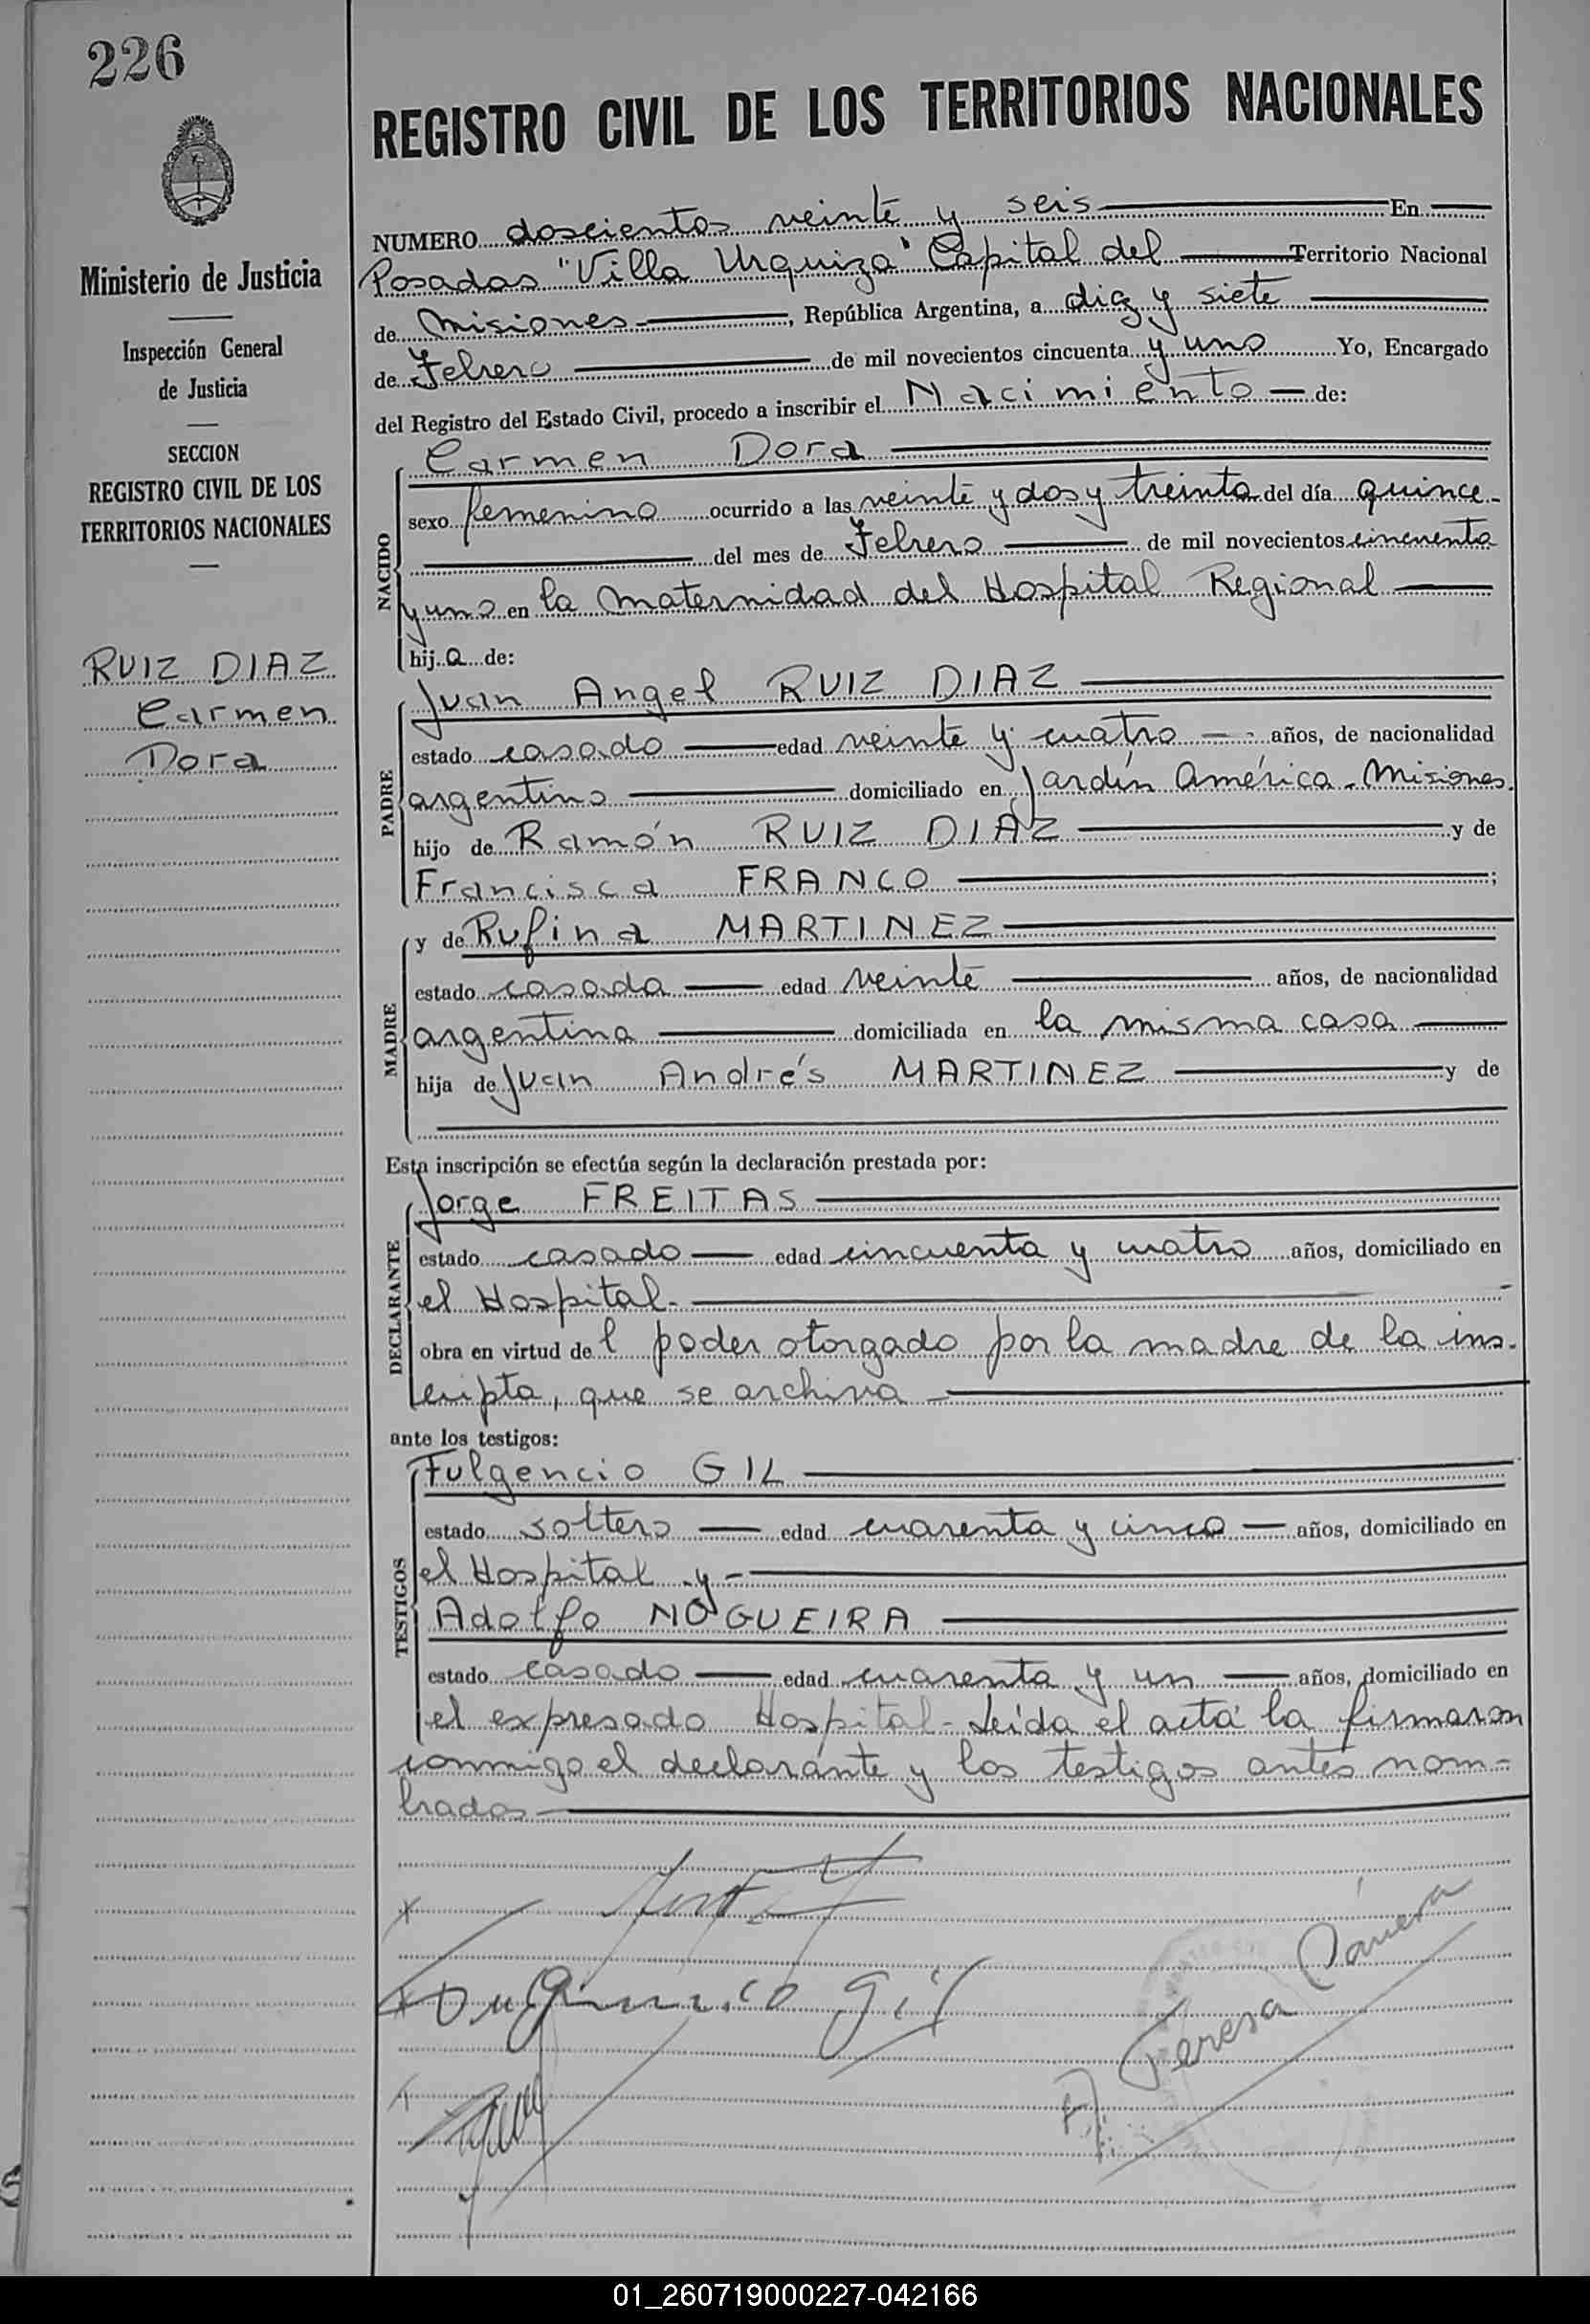 226
REGISTRO CIVIL DE LOS TERRITORIOS NACIONALES
Ministerio de Justicia
Inspección General
de Justicia
SECCION
REGISTRO CIVIL DE LOS
TERRITORIOS NACIONALES
RUIZ DIAZ
Carmen
Dora
NUMERO doscientos veinte y seis En
Posadas "Villa Urquiza" Capital del Territorio Nacional
de Misiones, República Argentina, a diez y siete
de Febrero de mil novecientos cincuenta y uno Yo, Encargado
del Registro del Estado Civil, procedo a inscribir el Nacimiento de:
NACIDO
Carmen Dora
sexo femenino ocurrido a las veinte y dos y treinta del día quince
del mes de Febrero de mil novecientos cincuenta
y uno en la Maternidad del Hospital Regional
hija de:
PADRE
Juan Angel RUIZ DIAZ
estado casado edad veinte y cuatro años, de nacionalidad
argentino domiciliado en Jardín América - Misiones.
hijo de Ramón RUIZ DIAZ y de
Francisca FRANCO ;
MADRE
y de Rufina MARTINEZ
estado casada edad veinte años, de nacionalidad
argentina domiciliada en la misma casa
hija de Juan Andrés MARTINEZ y de
Esta inscripción se efectúa según la declaración prestada por:
DECLARANTE
Jorge FREITAS
estado casado edad cincuenta y cuatro años, domiciliado en
el Hospital.
obra en virtud del poder otorgado por la madre de la ins-
cripta, que se archiva
ante los testigos:
TESTIGOS
Fulgencio GIL
estado soltero edad cuarenta y cinco años, domiciliado en
el Hospital y
Adolfo NOGUEIRA
estado casado edad cuarenta y un años, domiciliado en
el expresado Hospital - Leída el acta la firmaron
conmigo el declarante y los testigos antes nom-
brados
Gil
Teresa
01_260719000227-042166